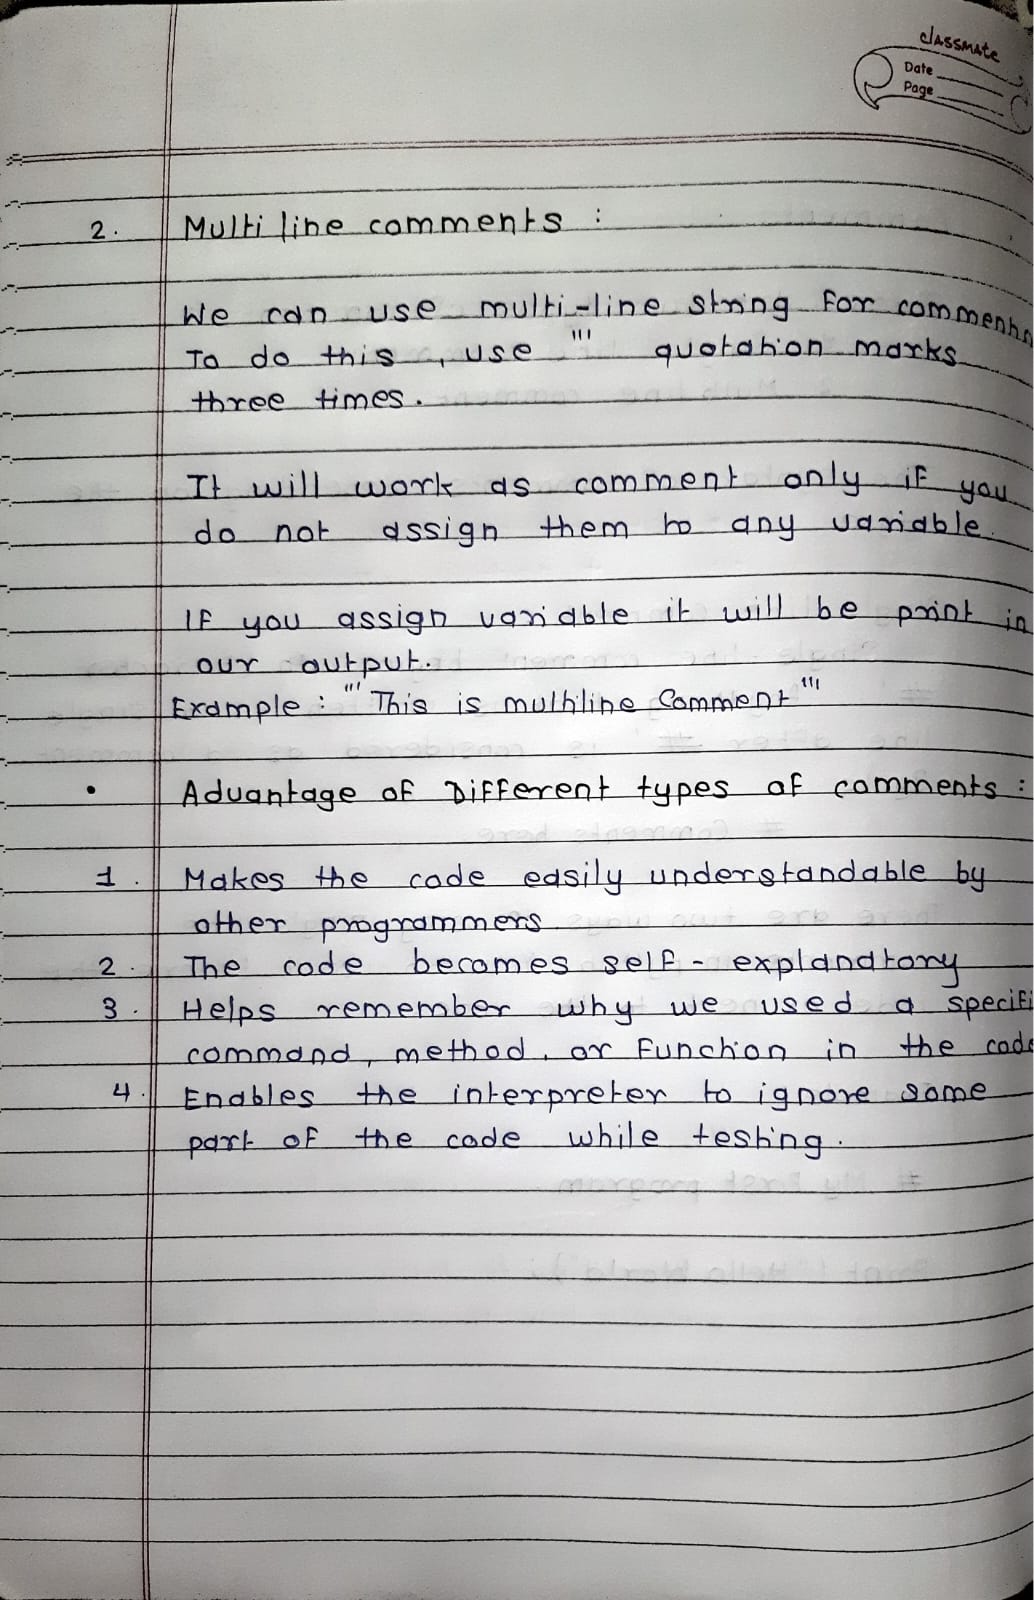 classmate
Date
Page
2. Multi line comments :
We can use multi-line string for comments
To do this, use ''' quotation marks
three times.
It will work as comment only if you
do not assign them to any variable.
If you assign variable it will be print in
our output.
Example : ''' This is multiline Comment '''
• Advantage of Different types of comments :
1. Makes the code easily understandable by
other programmers
2. The code becomes self-explanatory
3. Helps remember why we used a specifi
command, method, or function in the code
4. Enables the interpreter to ignore some
part of the code while testing.